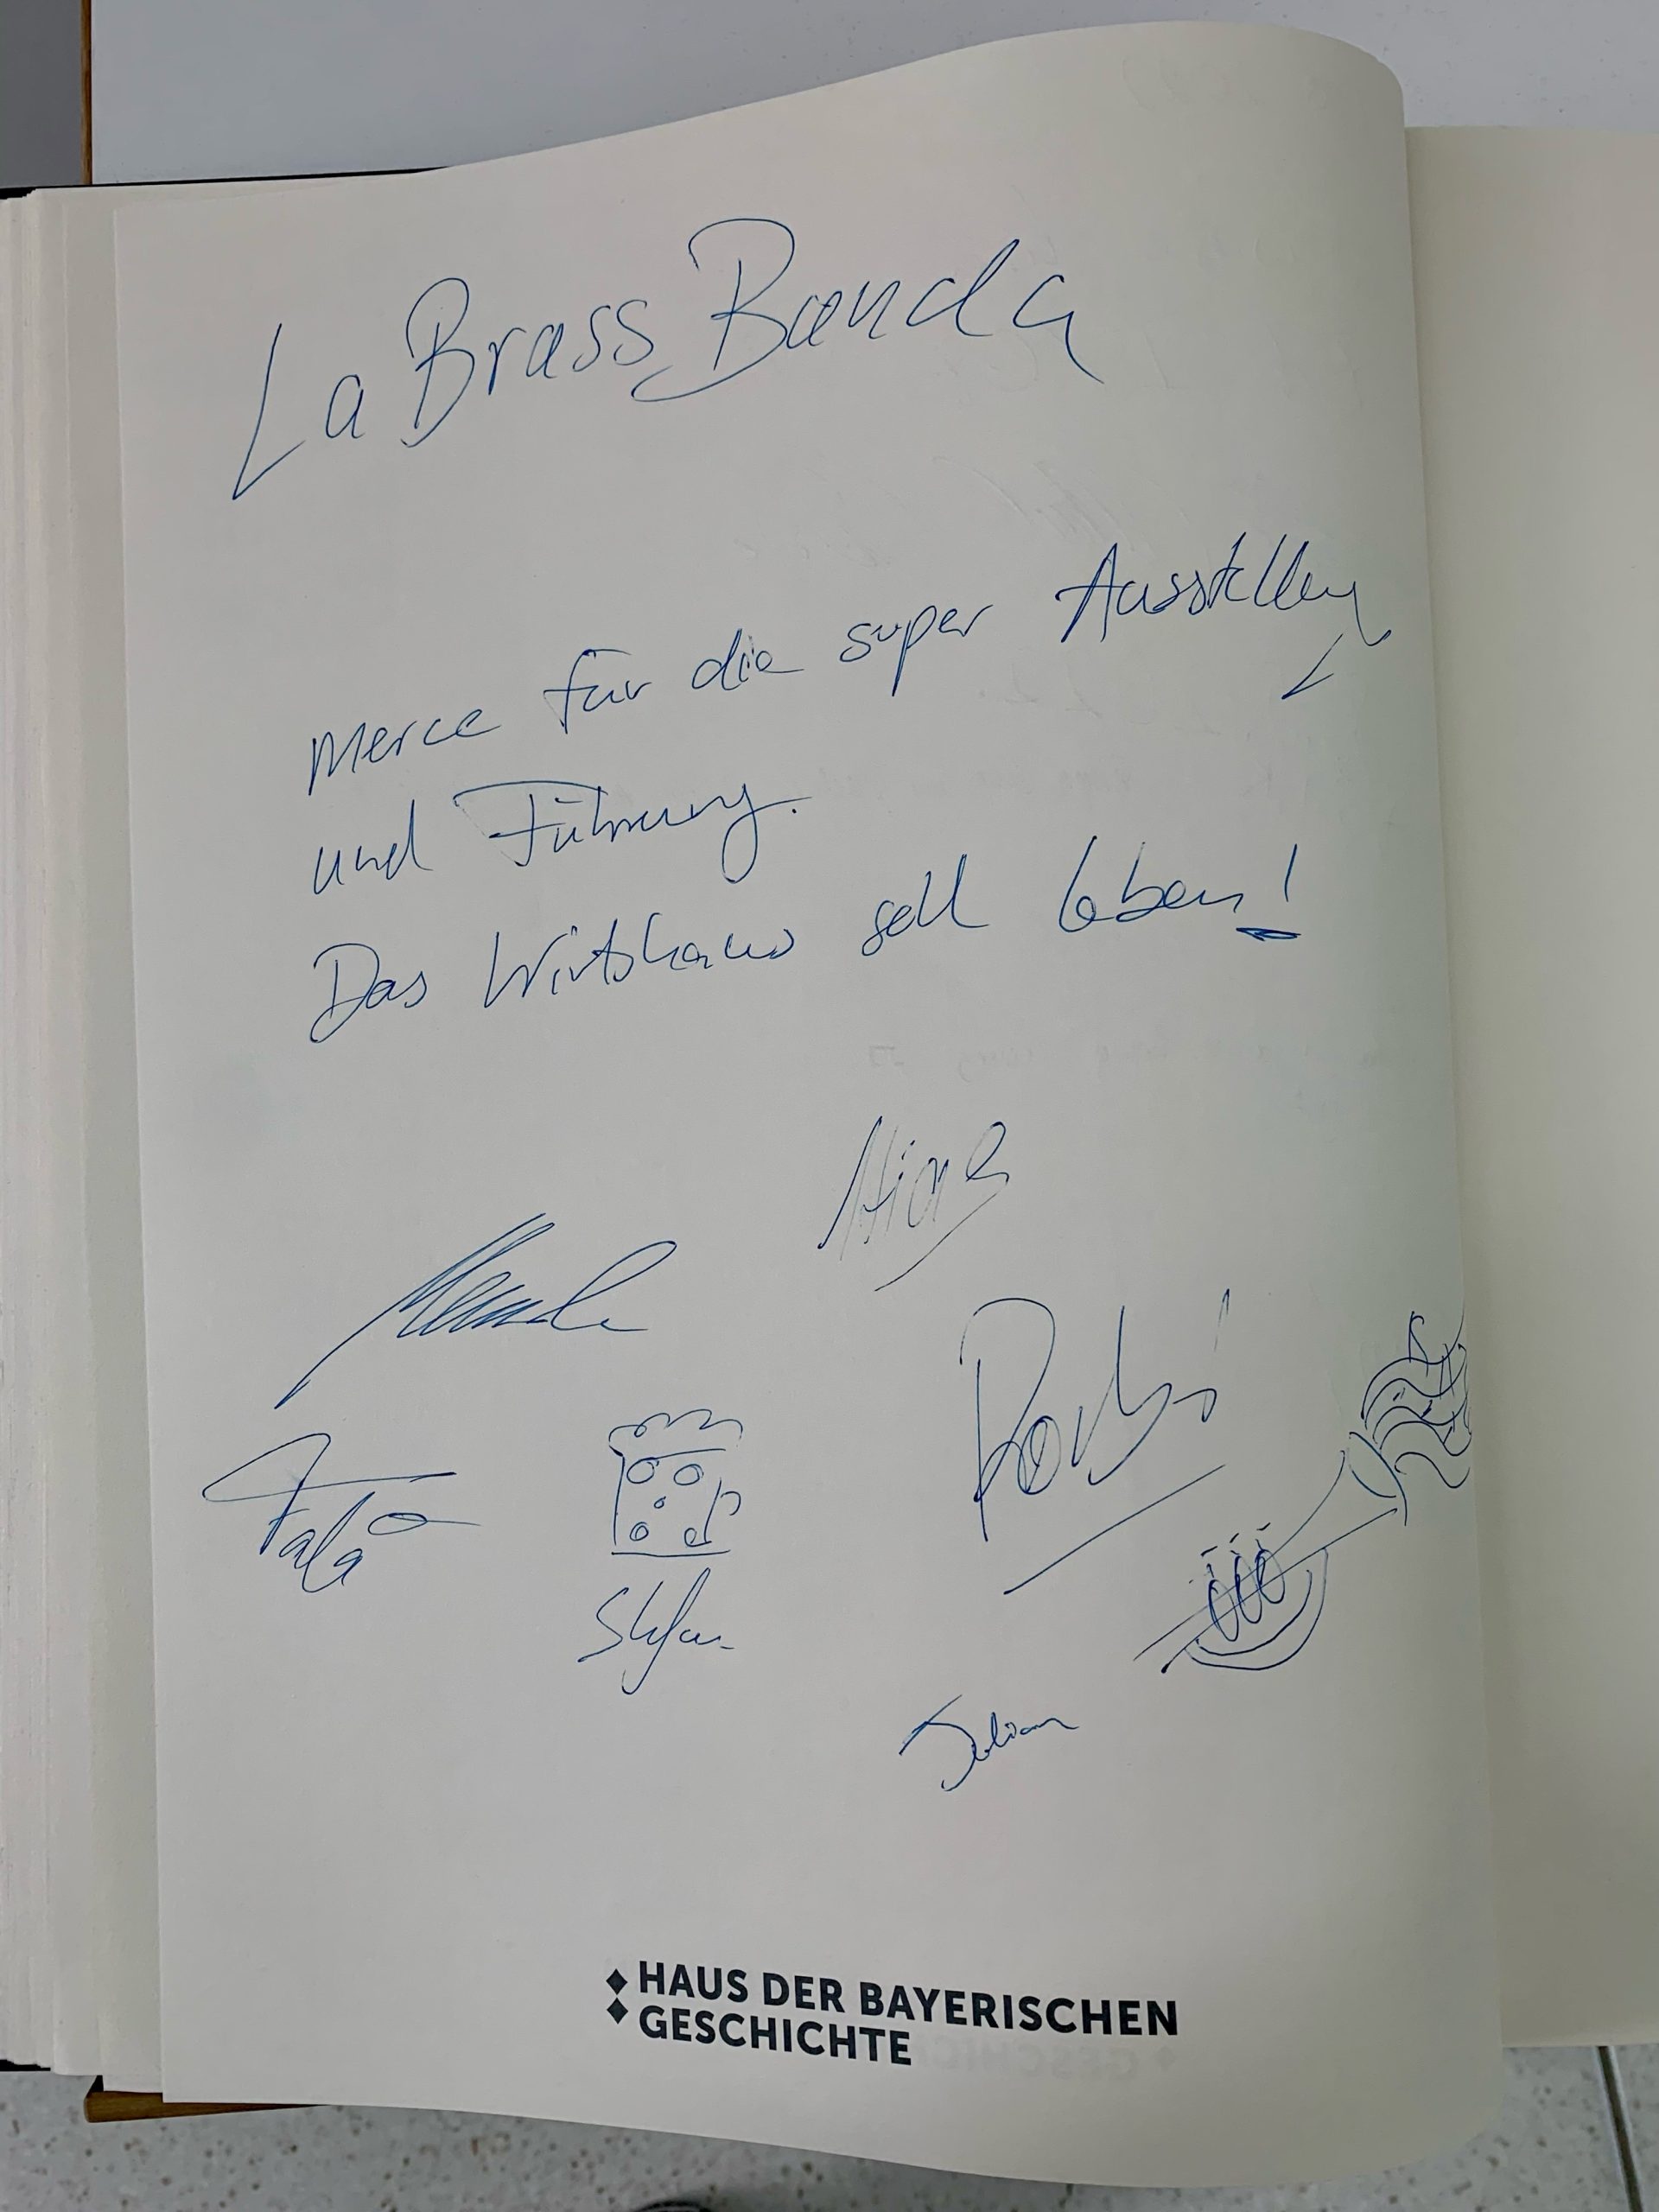 La Brass Banda
Merce für die super Ausstellung
und Führung.
Das Wirtshaus soll leben!
Hias
Manuel
Robi
Fabi
Stefan
Julian
HAUS DER BAYERISCHEN
GESCHICHTE